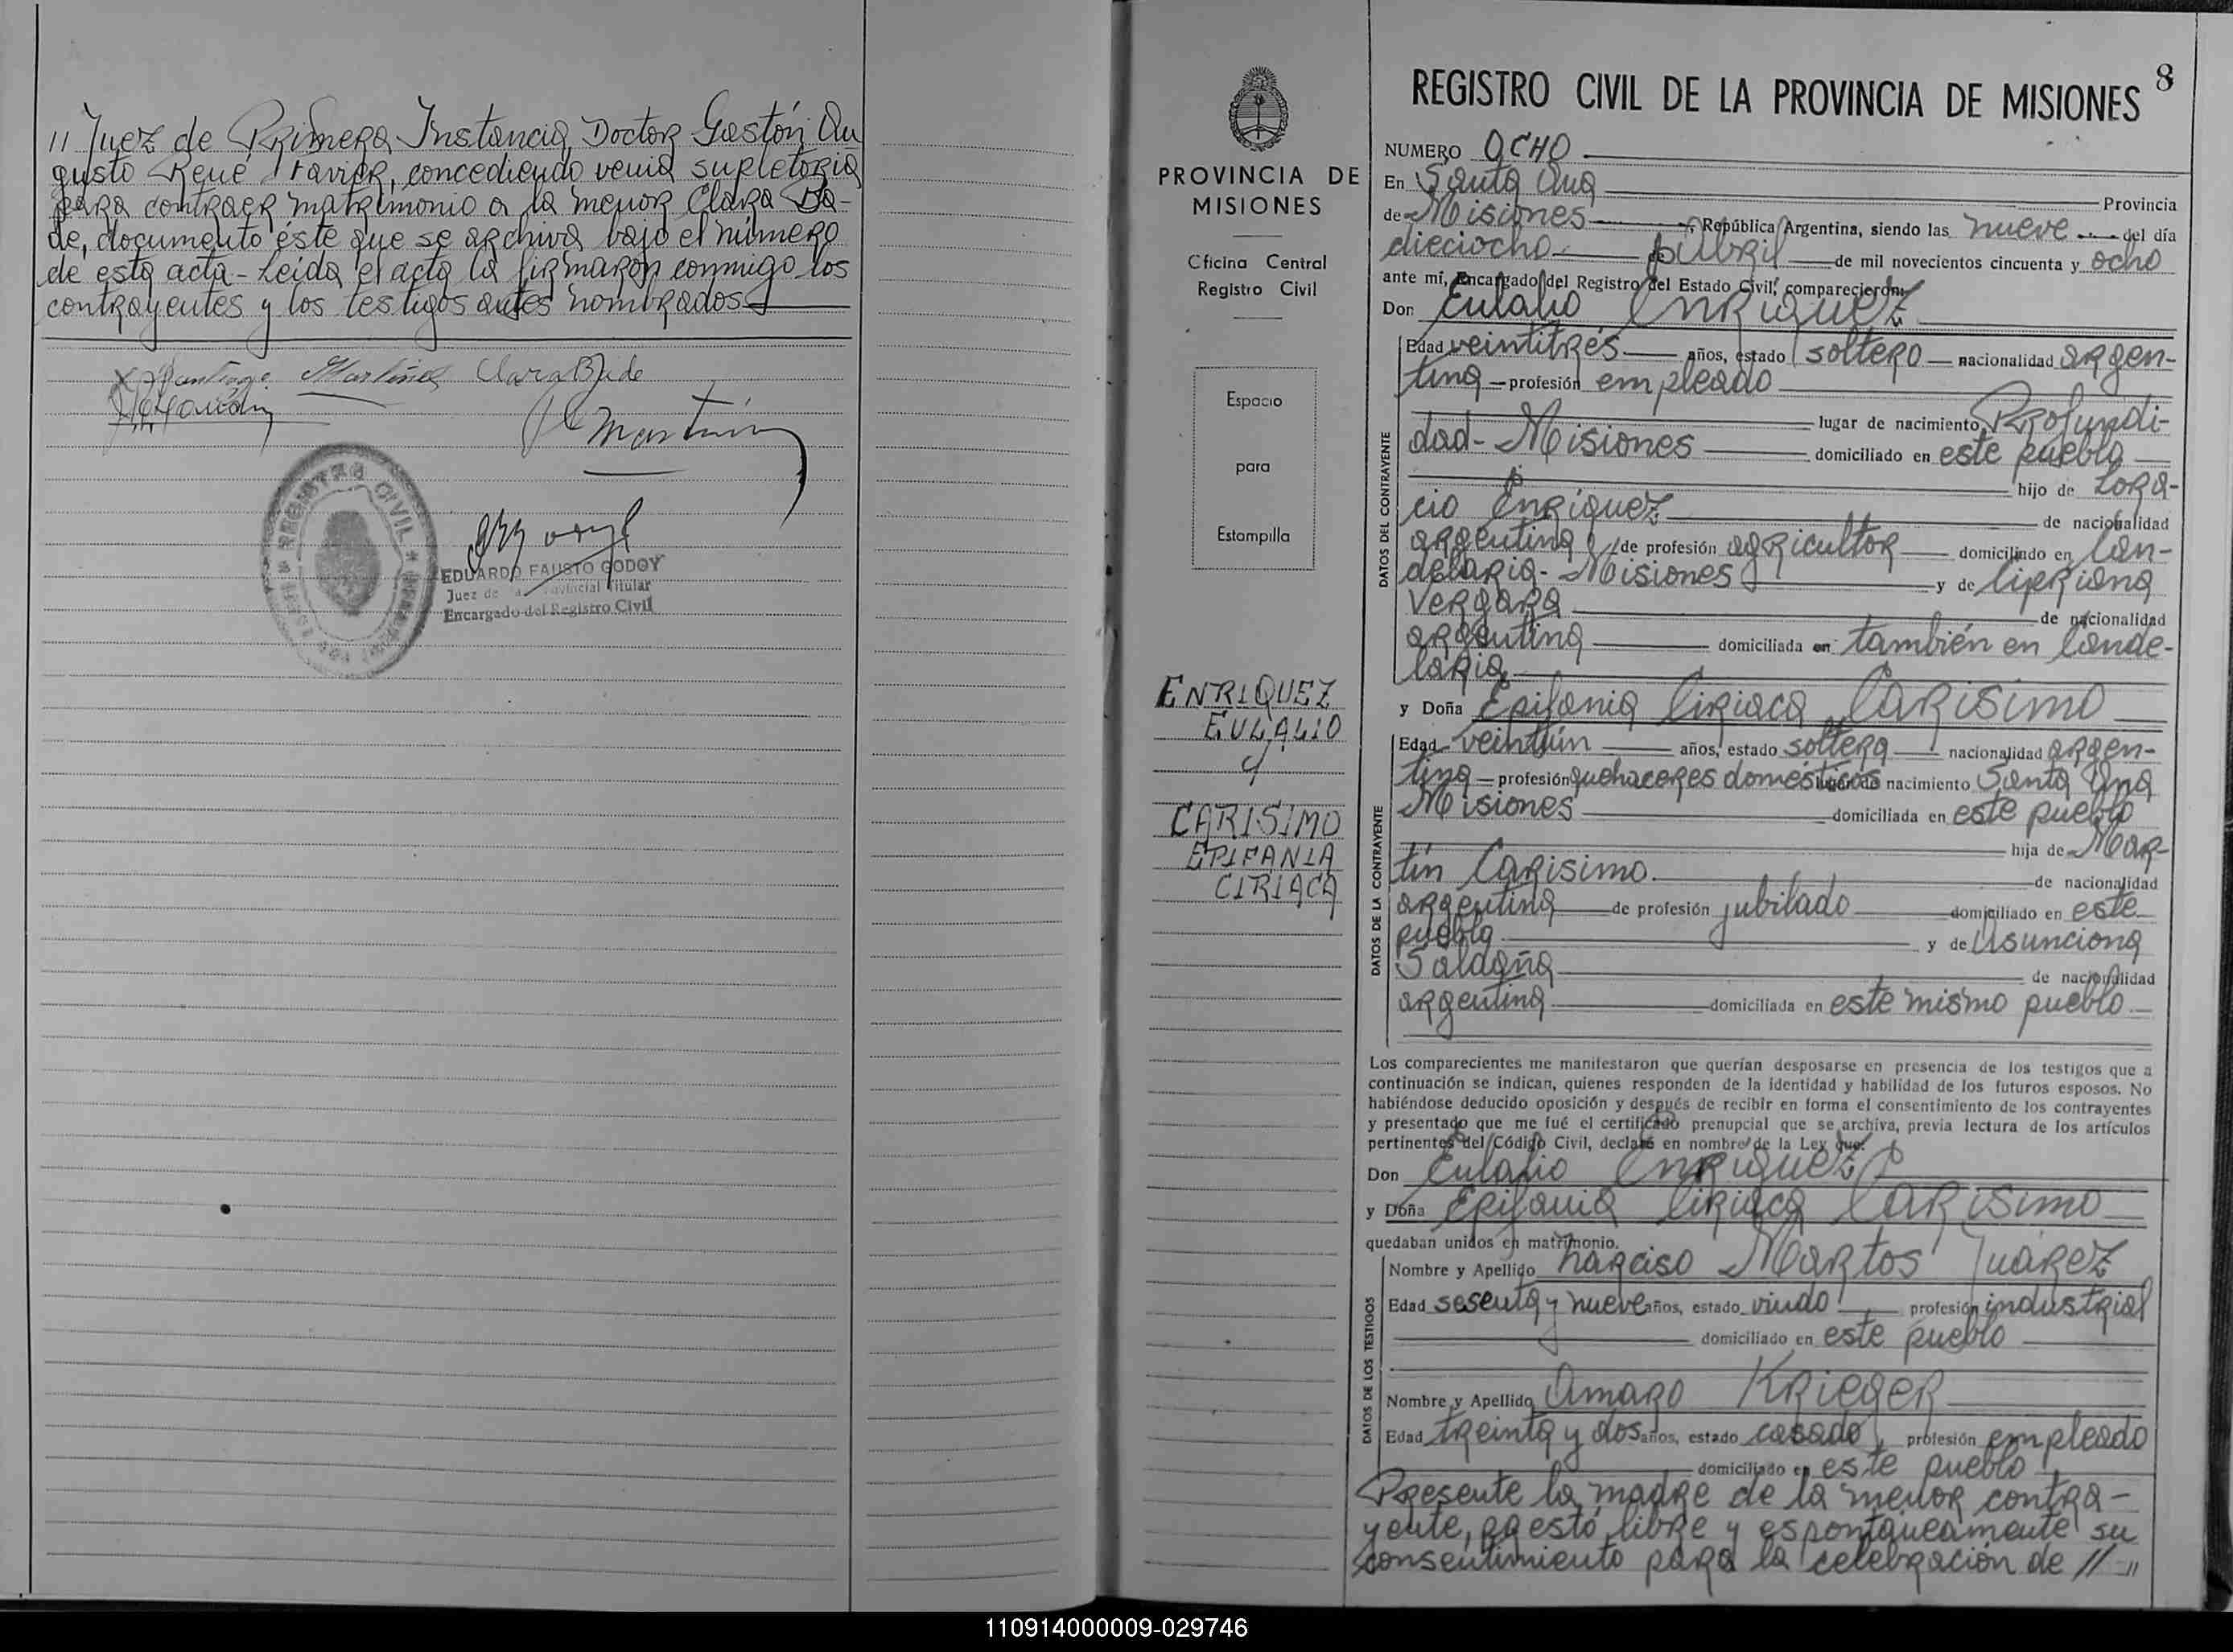 // Juez de Primera Instancia, Doctor Gastón Au
gusto René, concediendo venia supletoria
para contraer matrimonio a la menor Clara Ba-
de, documento éste que se archiva bajo el número
de esta acta - Leída el acta la firmaron conmigo los
contrayentes y los testigos antes nombrados
Santiago Martínez Clara Bade
Martin
REGISTRO CIVIL
EDUARDO FAUSTO GODOY
Juez de Provincial Titular
Encargado del Registro Civil
PROVINCIA DE
MISIONES
Oficina Central
Registro Civil
Espacio
para
Estampilla
ENRIQUEZ
EULALIO
c/
CARISIMO
EPIFANIA
CIRIACA
8
REGISTRO CIVIL DE LA PROVINCIA DE MISIONES
NUMERO OCHO
En Santa Ana Provincia
de Misiones, República Argentina, siendo las nueve del día
dieciocho Abril de mil novecientos cincuenta y ocho
ante mí, Encargado del Registro del Estado Civil, comparecieron:
Don Eulalio Enriquez
DATOS DEL CONTRAYENTE
Edad veintitrés años, estado soltero nacionalidad argen-
tina profesión empleado
lugar de nacimiento Profundi-
dad - Misiones domiciliado en este pueblo
hijo de Lora-
cio Enríquez de nacionalidad
argentina de profesión agricultor domiciliado en Can-
delaria - Misiones y de Cipriana
Vergara de nacionalidad
argentina domiciliada en también en Cande-
laria
y Doña Epifania Ciriaca Carisimo
DATOS DE LA CONTRAYENTE
Edad veintiún años, estado soltera nacionalidad argen-
tina profesión quehaceres domésticos lugar de nacimiento Santa Ana
Misiones domiciliada en este pueblo
hija de Mar-
tín Carisimo de nacionalidad
argentina de profesión jubilado domiciliado en este
pueblo y de Asunciona
Saldaña de nacionalidad
argentina domiciliada en este mismo pueblo
Los comparecientes me manifestaron que querían desposarse en presencia de los testigos que a
continuación se indican, quienes responden de la identidad y habilidad de los futuros esposos. No
habiéndose deducido oposición y después de recibir en forma el consentimiento de los contrayentes
y presentado que me fué el certificado prenupcial que se archiva, previa lectura de los artículos
pertinentes del Código Civil, declaré en nombre de la Ley que:
Don Eulalio Enriquez
y Doña Epifania Ciriaca Carisimo
quedaban unidos en matrimonio.
DATOS DE LOS TESTIGOS
Nombre y Apellido Narciso Martos Juárez
Edad sesenta y nueve años, estado viudo profesión industrial
domiciliado en este pueblo
Nombre y Apellido Amaro Krieger
Edad treinta y dos años, estado casado, profesión empleado
domiciliado en este pueblo
Presente la madre de la menor contra-
yente, prestó libre y espontáneamente su
consentimiento para la celebración de //
110914000009-029746